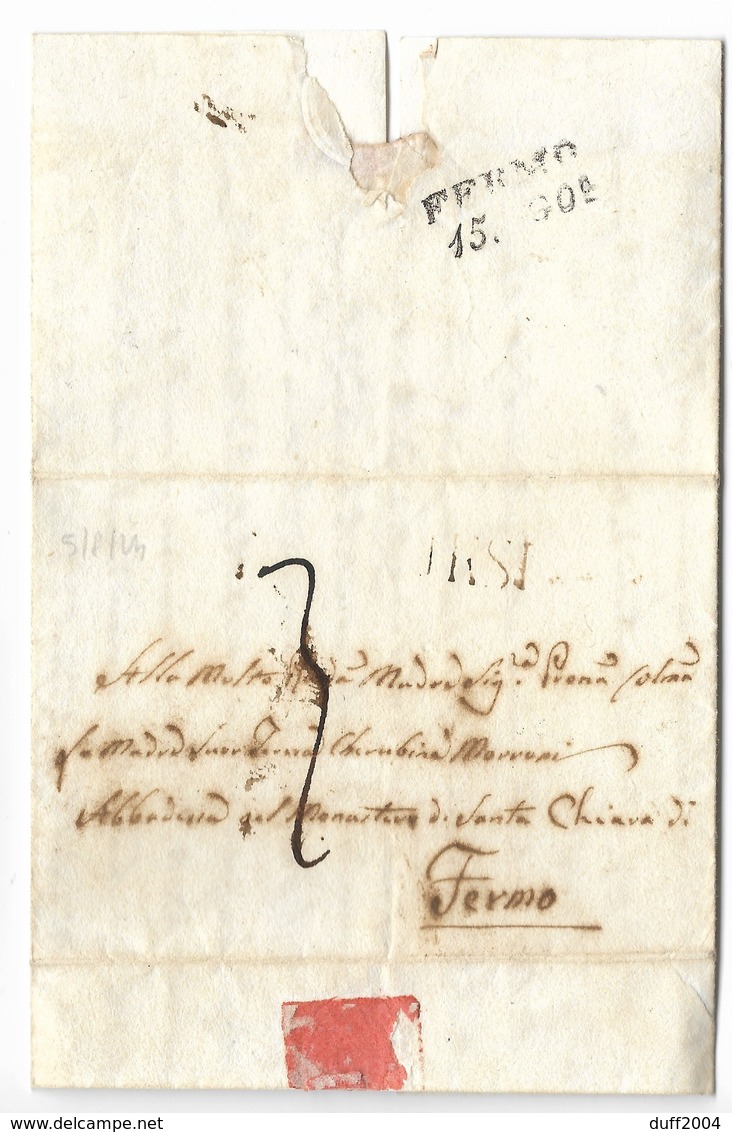 FERMO
15. GOº
5/8/24
3
IESI
Alla Molto Madre Sig.ª Prona Colma
La Madre Suor Cherubina Morroni
Abbadessa nel Monastero di Santa Chiara di
Fermo
duff2004